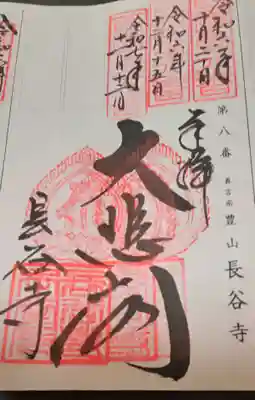 第八番 豊山 長谷寺
令和六年
十月二十日
令和六年
十二月十五日
令和七年
十二月十二日
奉拝
大悲閣
長谷寺